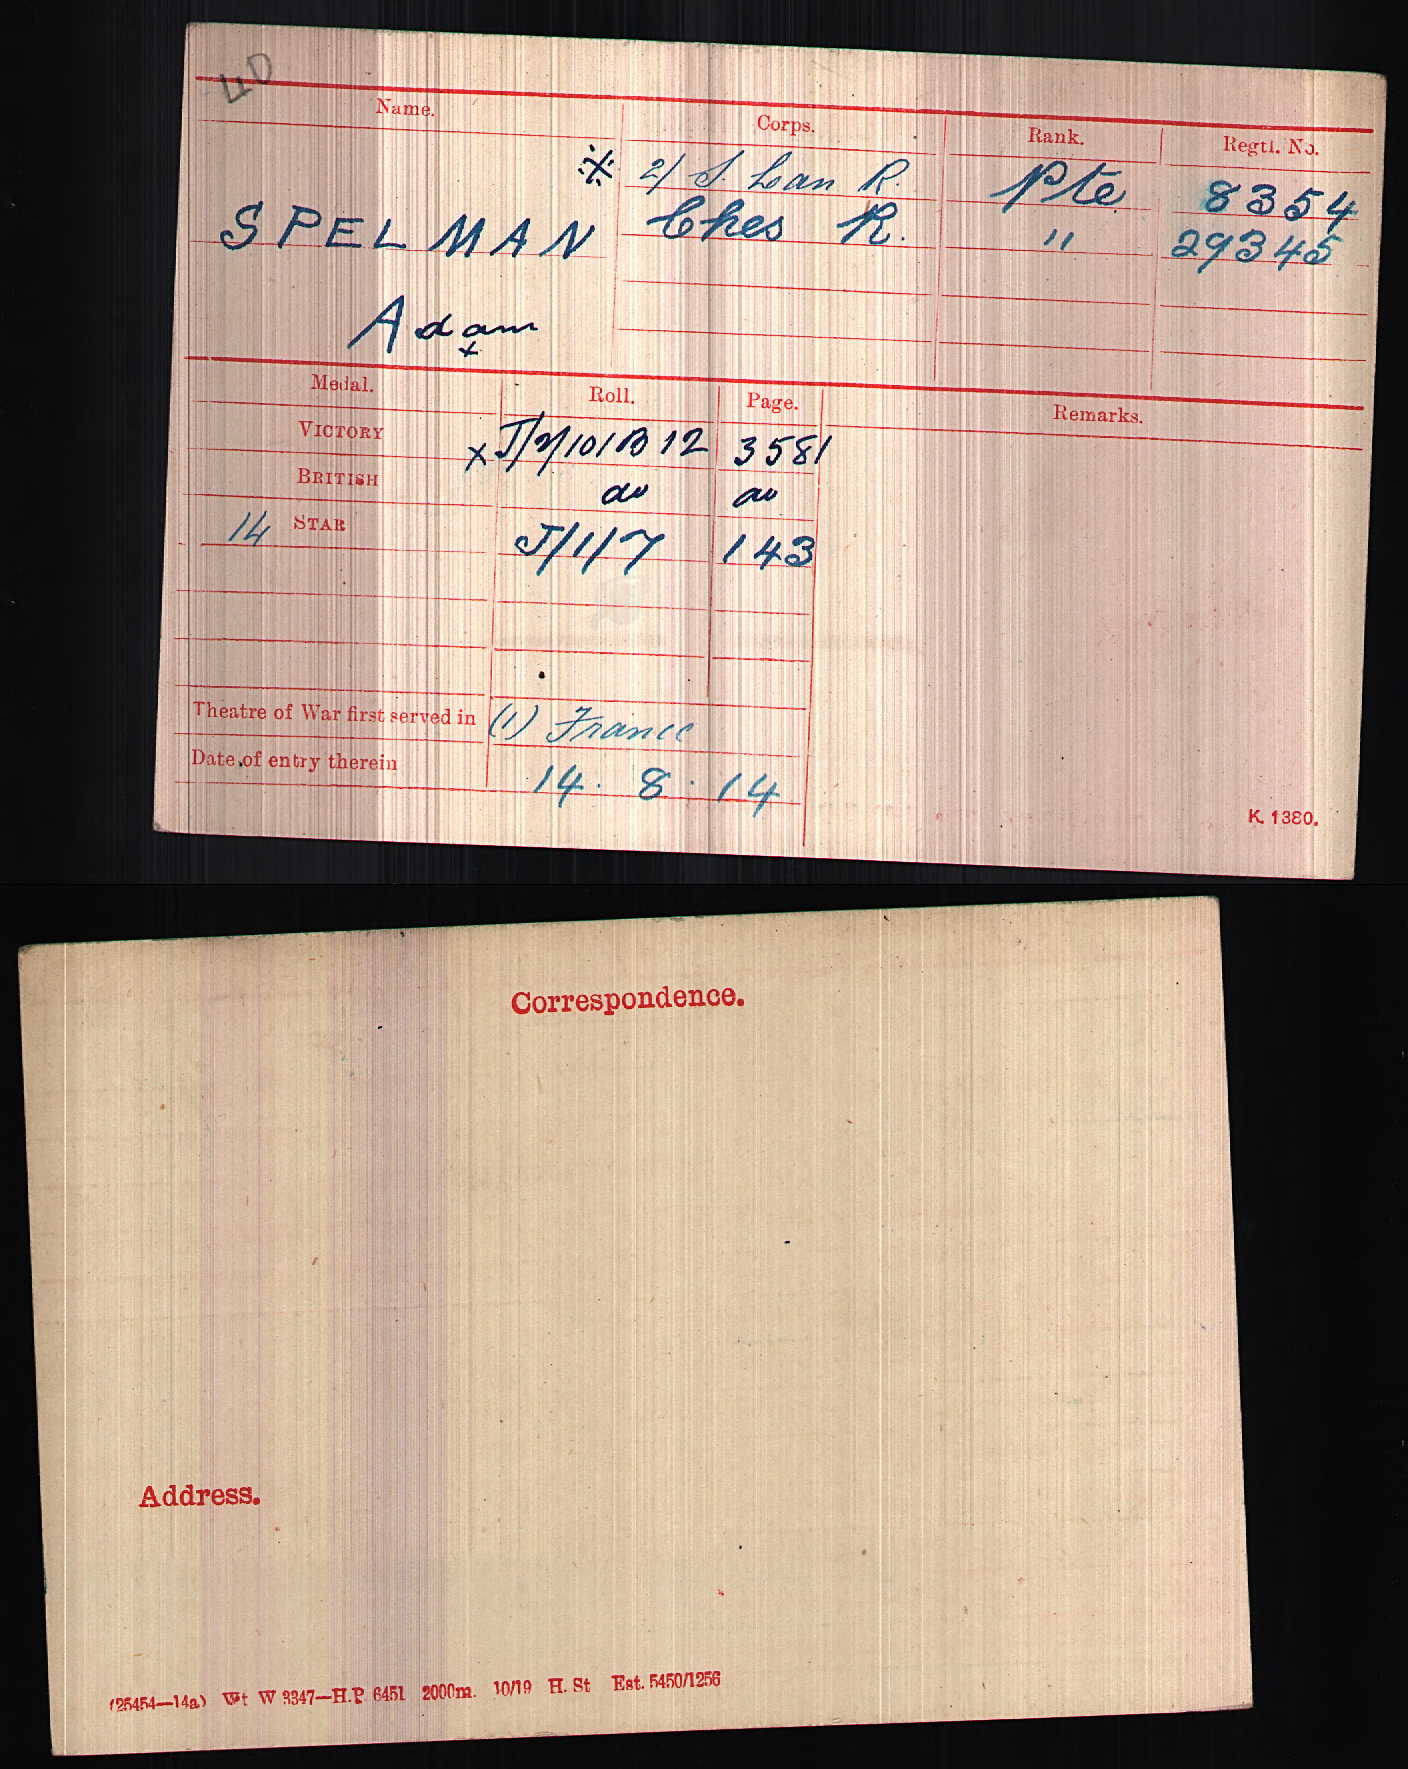 4D
Name. Corps. Rank. Regtl. No.
※ 2/ S. Lan R. Pte 8354
SPELMAN Ches R. " 29345
Adam
x
Medal. Roll. Page. Remarks.
VICTORY x J/2/101B12 3581
BRITISH do do
14 STAR J/1/7 143
Theatre of War first served in (1) France
Date of entry therein 14.8.14
K. 1380.
Correspondence.
Address.
(25454—14a) Wt W 3347—H.P. 6451 2000m. 10/19 H. St Est. 5450/1256